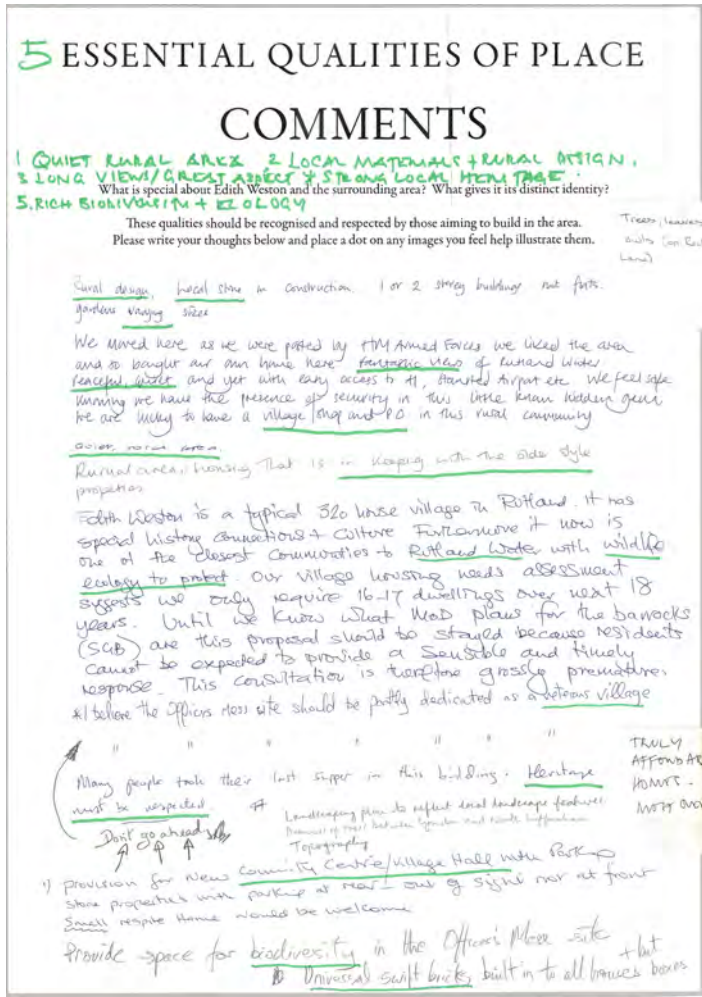 5 ESSENTIAL QUALITIES OF PLACE
COMMENTS
1 QUIET RURAL AREA 2 LOCAL MATERIALS + RURAL DESIGN.
3 LONG VIEWS/GREAT ASPECT 4 STRONG LOCAL HERITAGE.
What is special about Edith Weston and the surrounding area? What gives it its distinct identity?
5. RICH BIODIVERSITY + ECOLOGY
These qualities should be recognised and respected by those aiming to build in the area.
Please write your thoughts below and place a dot on any images you feel help illustrate them.
Trees, leaves
owls (on Red
Land)
Rural design, Local stone in construction. 1 or 2 storey buildings not flats.
gardens varying sizes
We moved here as we were posted by HM Armed Forces we liked the area
and so bought our own home here fantastic views of Rutland Water
peaceful, quiet and yet with easy access to A1, Stansted Airport etc. We feel safe
knowing we have the presence of security in this little known hidden gem
we are lucky to have a village/shop and PO in this rural community
Quiet, rural area.
Rurual area, housing That is in keeping with the olde style
properties
Edith Weston is a typical 320 house village in Rutland. It has
special history connections + culture Furthermore it now is
one of the closest communities to Rutland Water with wildlife
ecology to protect. Our village housing needs assessment
suggests we only require 16-17 dwellings over next 18
years. Until we know what MoD plans for the barracks
(SGB) are this proposal should be stayed because residents
cannot be expected to provide a sensible and timely
response. This consultation is therefore grossly premature.
*I believe the Officers Mess site should be partly dedicated as a veterans village
" " " " " " "
TRULY
AFFORDAB
HOMES -
Many people took their last supper in this building. Heritage
must be respected.
Landscaping plan to reflect local landscape features
Topography
Don't go ahead
1) provision for New Community Centre/Village Hall with Parking
stone properties with parking at rear - out of sight not at front
Small respite Home would be welcome
Provide space for biodiversity in the Officer's Mess site
Universal swift bricks built in to all houses + bat boxes